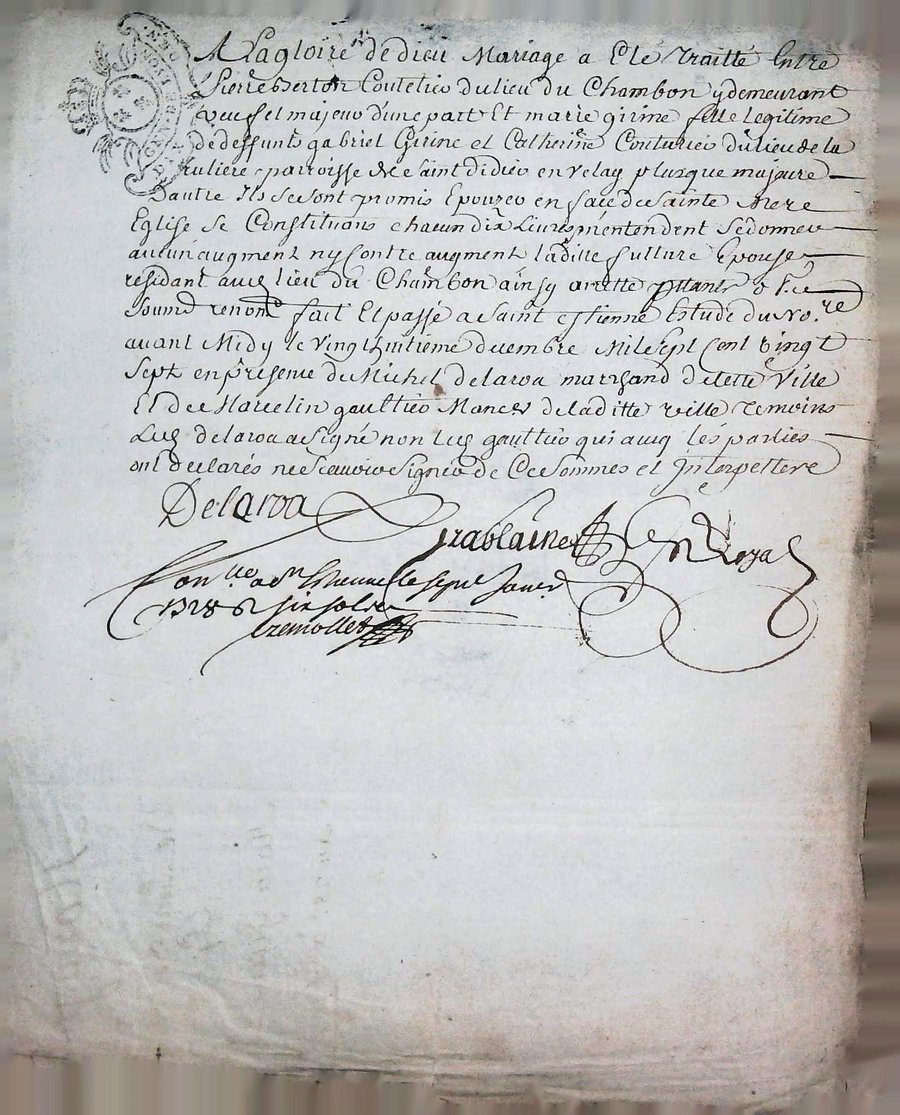 A La gloire de dieu Mariage a Eté Traitté Entre
Pierre Berton Coutelier du lieu du Chambon y demeurant
veuf et majeur d'une part Et marie girine fille legitime
de deffunts gabriel Girine et Catherine Couturier du lieu de la
ruliere parroisse de saint didier en velay plusque majeure
D'autre Ils se sont promis Epouzer en face de sainte mere
Eglise se Constituans chacun dix Livres nentendent se donner
aucun augment ny contre augment laditte future Epouse
residant au lieu du Chambon ainsy arretté
soumis renon fait Et passé a saint etienne Estude du No.re
avant Midy le vingt huitieme decembre Mil sept cent vingt
sept en presence de Michel delaroa marchand de cette ville
Et de Marcelin gaultier de laditte ville temoins
Led delaroa a signé non led gaultier qui avecq les parties
ont declarés ne scavoir signer de Ce sommes et Interpellere
Delaroa grablaine Royal
Con.lle a St Etienne le sept Janv.r
1728 six sols